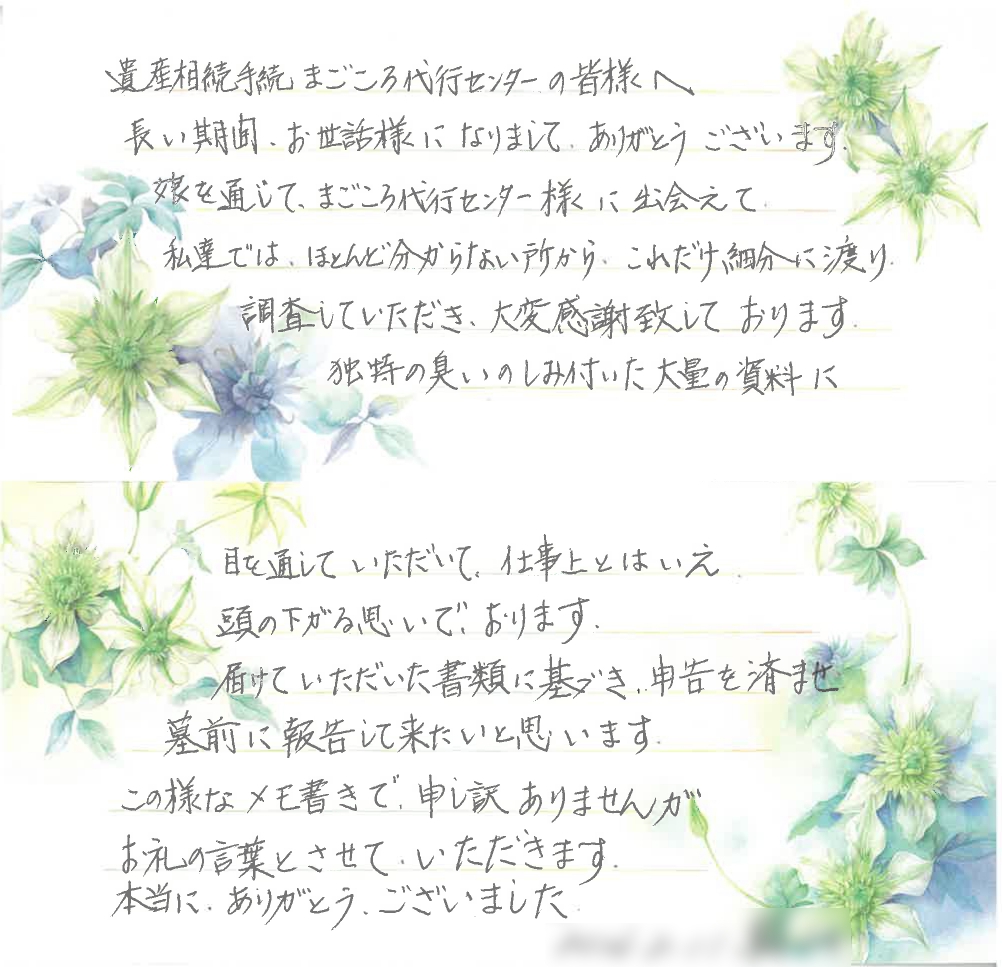 遺産相続手続まごころ代行センターの皆様へ
長い期間、お世話様になりまして、ありがとうございます。
娘を通して、まごころ代行センター様に出会えて
私達では、ほとんど分からない所から、これだけ細分に渡り、
調査していただき、大変感謝致しております。
独特の臭いのしみ付いた大量の資料に
目を通していただいて、仕事上とはいえ、
頭の下がる思いで、おります。
届けていただいた書類に基づき、申告を済ませ
墓前に報告して来たいと思います。
この様なメモ書きで、申し訳ありませんが
お礼の言葉とさせて、いただきます。
本当に、ありがとう、ございました。